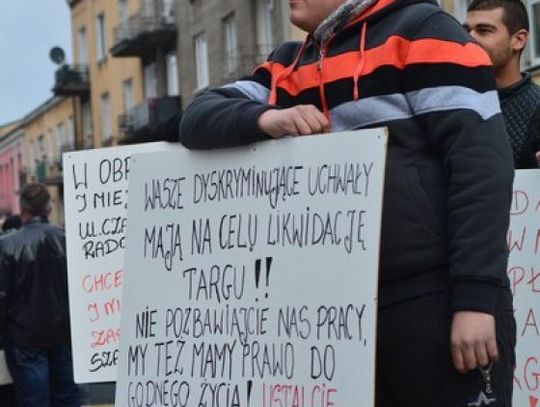 W OBR
I MIE
UL.CZA
RADO
CHCE
I MI
ZAS
SZA
WASZE DYSKRYMINUJĄCE UCHWAŁY
MAJĄ NA CELU LIKWIDACJĘ
TARGU !!
NIE POZBAWIAJCIE NAS PRACY,
MY TEŻ MAMY PRAWO DO
GODNEGO ŻYCIA! USTALCIE